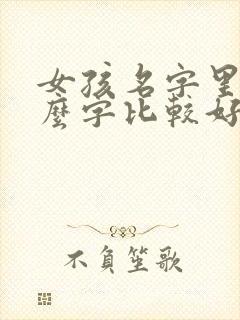 女孩名字里
麼字比較好
不負笙歌